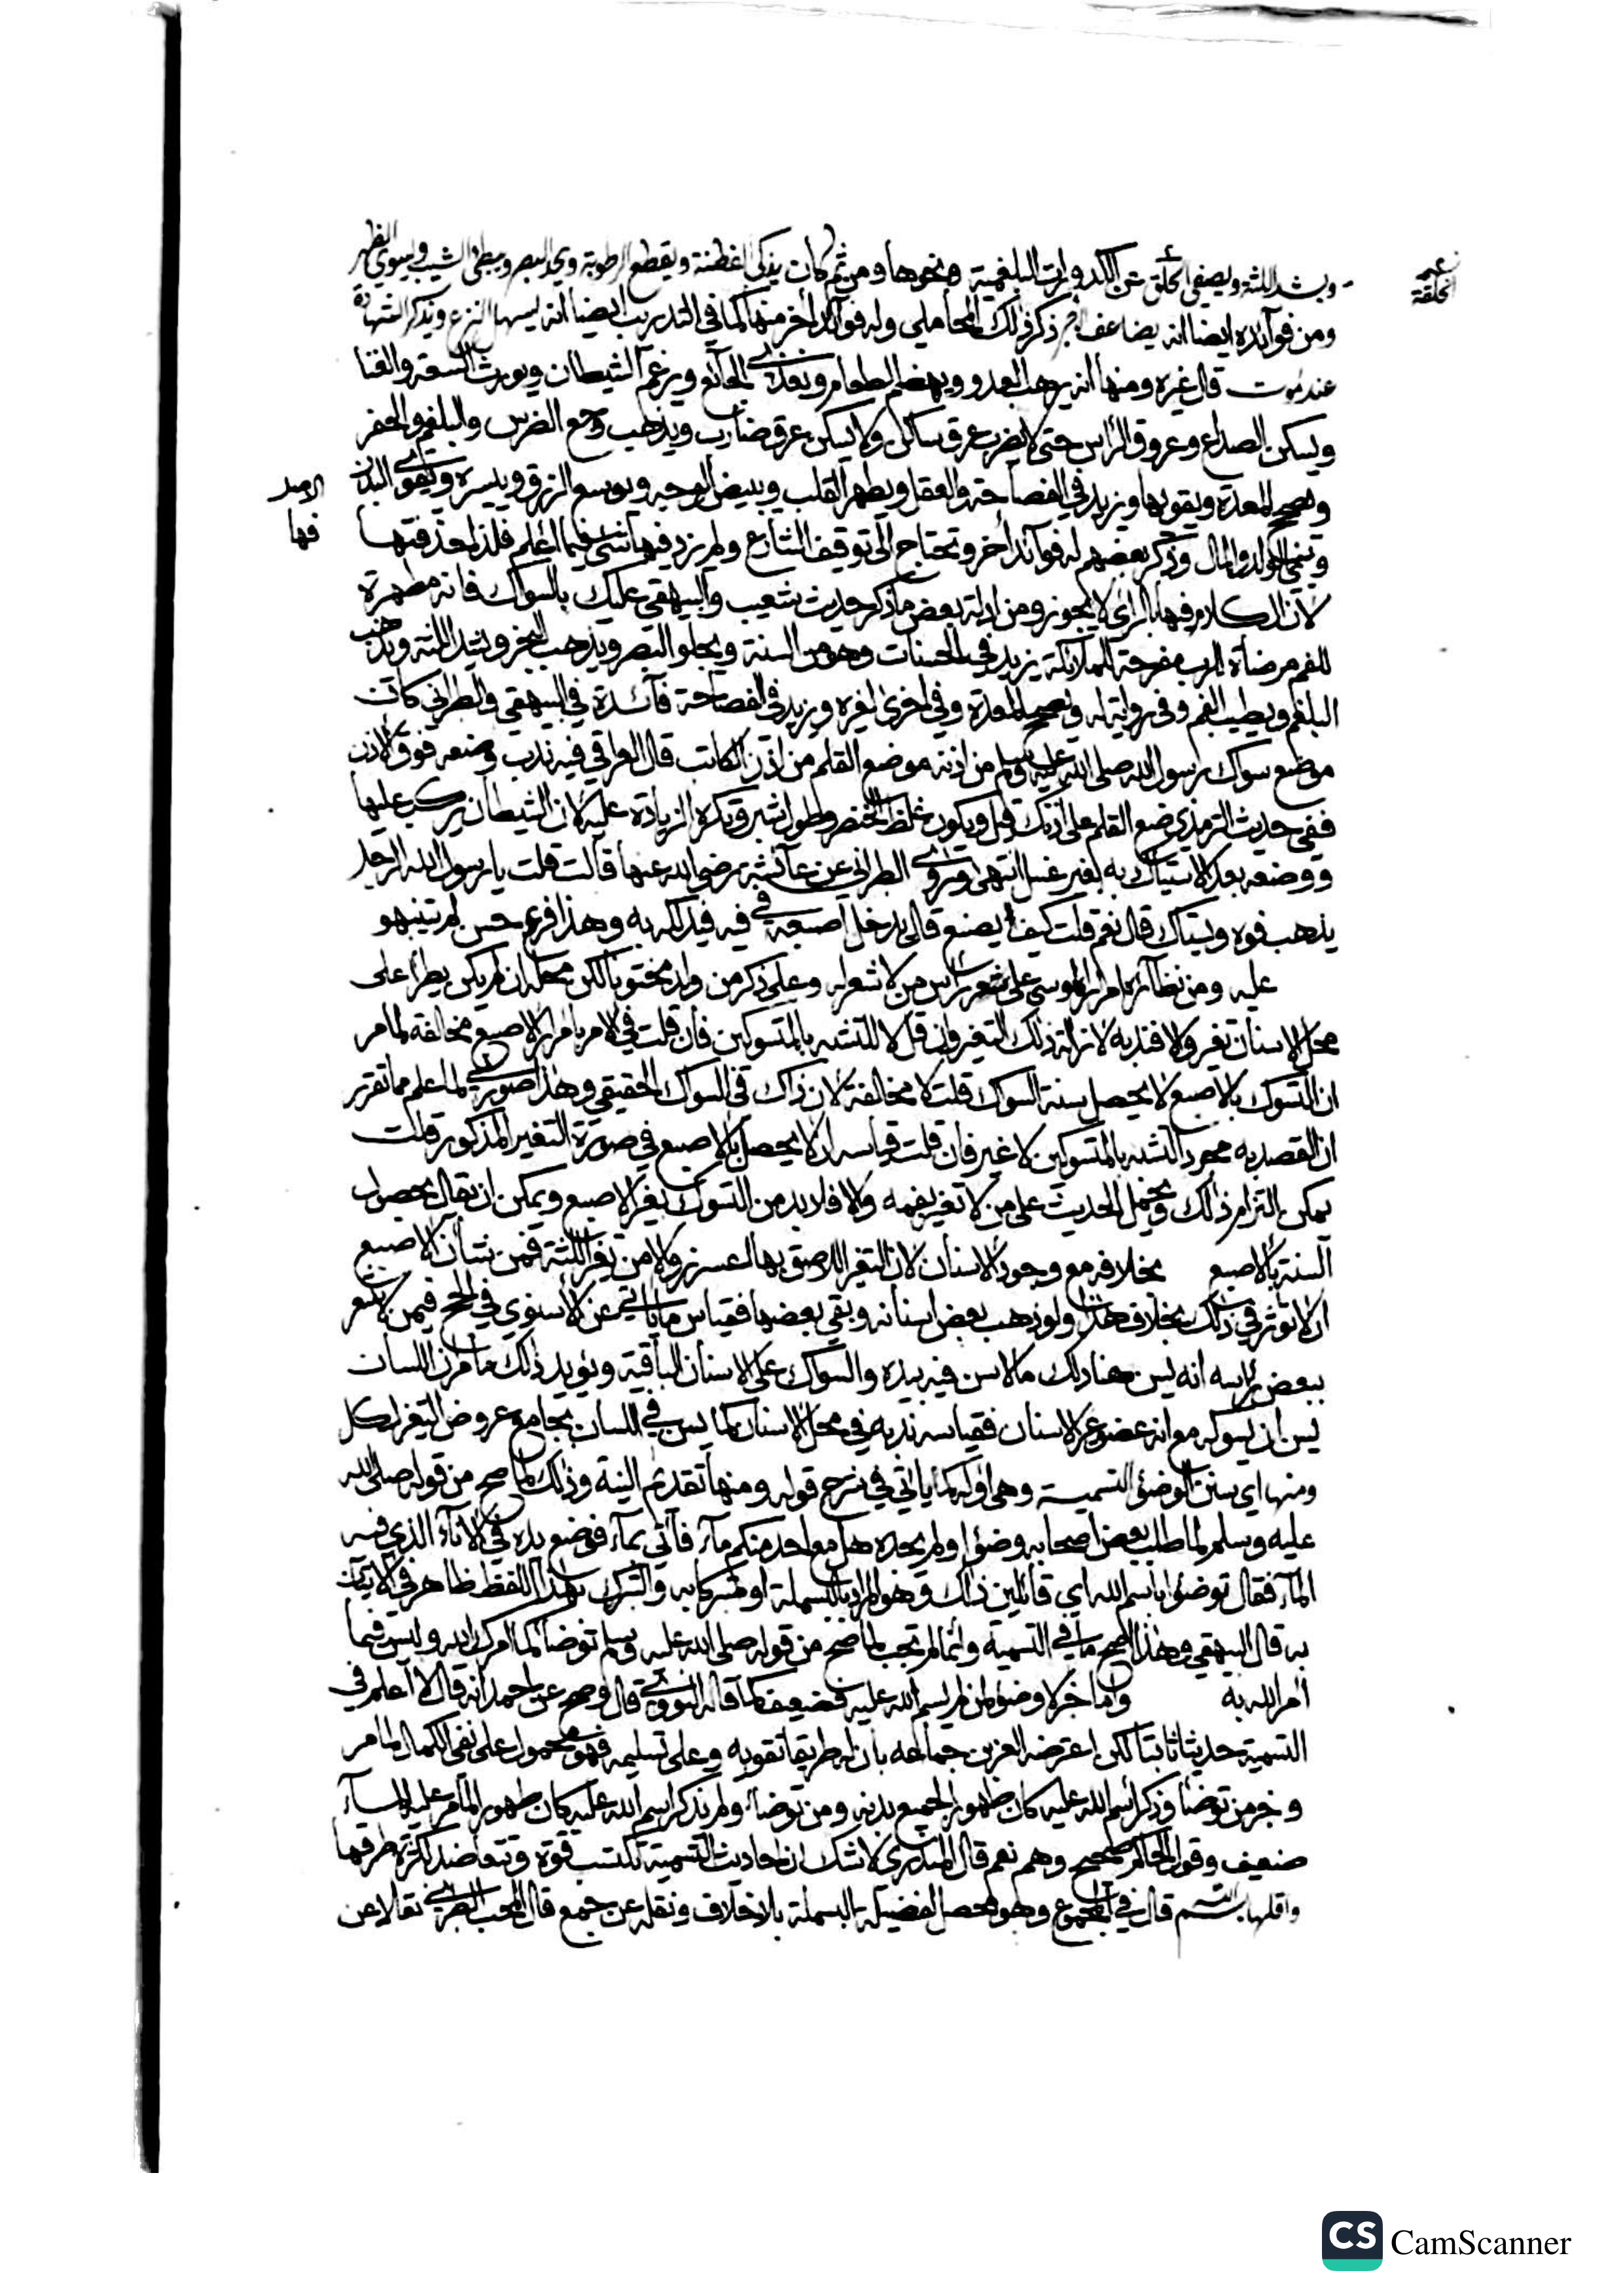 ويشد اللثة ويصفي الحلق عن الكدورات البلغمية ونحوها ومن ثم كان يذكي الفطنة ويقطع الرطوبة ويحد البصر ويبطئ الشيب ويسوي الظهر
ومن فوائده ايضا انه يضاعف اجر ذكر ذلك المحاملي وله فوائد أخر منها كما في التدريب ايضا انه يسهل النزع ويذكر الشهادة
عند الموت قال غيره ومنها أنه يرهب العدو ويهضم الطعام ويغذي الجائع ويرغم الشيطان ويورث السعة والغنا
ويسكن الصداع وعروق الرأس حتى لا يضرب عرق ساكن ولا يسكن عرق ضارب ويذهب وجع الضرس والبلغم والحفر
ويصحح المعدة ويقويها ويزيد في الفصاحة والعقل ويطهر القلب ويبيض الوجه ويوسع الرزق وييسره ويقوي البدن
وينمي الولد والمال وذكر بعضهم له فوائد أخر وتحتاج الى توقيف الشارع ولم يرد فيها شئ فيما أعلم فلذا حذفتها
لان الكلام فيها بالرأي لا يجوز ومن ادلة بعض ما ذكر حديث شعيب والبيهقي عليك بالسواك فانه مطهرة
للفم مرضاة للرب مفرحة للملائكة يزيد في الحسنات وهو من السنة ويجلو البصر ويذهب البخر ويشد اللثة ويذهب
البلغم ويطيب الفم وفي رواية له ويصحح المعدة وفي اخرى لغيره ويزيد في الفصاحة فائدة في البيهقي والطبراني كان
موضع سواك رسول الله صلى الله عليه وسلم من اذنه موضع القلم من اذن الكاتب قال العراقي فيه ندب وضعه فوق الاذن
ففي حديث الترمذي ضع القلم على اذنك قيل ويكون غلظ الخنصر وطول شبر وتكره الزيادة عليه لان الشيطان يركب عليها
ووضعه بعد الاستياك به لغير غسل انتهى وروى الطبراني عن عائشة رضي الله عنها قالت قلت يا رسول الله الرجل
يذهب فوه ويستاك قال نعم قلت كيف يصنع قال يدخل اصبعه في فيه فيدلكه به وهذا فرع حسن لم تينبهو
عليه ومن نظائره امرار الموسى على شعر راس من لا شعر له وعلى ذكر من ولد مختونا لكن محله ان لم يكن يطرأ على
محل الاسنان تغير ولا فندبه لازالة ذلك التغير وان قل لا للتشبه بالمتسوكين فان قلت في الامر بامرار الاصبع مخالفة لما مر
ان التسوك بالاصبع لا يحصل سنة السواك قلت لا مخالفة لان ذاك في السواك الحقيقي وهذا صوري لما علم مما تقرر
ان القصد به مجرد التشبه بالمتسوكين لا غير فان قلت قياسه ان لا يحصل بالاصبع في صورة التغير المذكور قلت
يمكن التزام ذلك ويحمل الحديث على من لا تغير بفمه والا فلا بد من التسوك بغير الاصبع ويمكن ان يقال بحصول
السنة بالاصبع بخلافه مع وجود الاسنان لان التغير اللاصق بها اعسر زوالا من تغير اللثة فمن شأن الاصبع
ان لا تؤثر في ذلك بخلاف هذا ولو ذهب بعض اسنانه وبقي بعضها فقياس ما ياتي عن الأسنوي في الحج فيمن لا شعر
ببعض رأسه أنه يسن هنا دلك ما لا سن فيه بيده والسواك على الاسنان الباقية ويؤيد ذلك ما مر ان اللسان
يسن ان يسوكه مع انه عضو غير الاسنان فقياسه ندبه في محل الاسنان كما يسن في اللسان بجامع عروض التغير لكل
ومنها اي سنن الوضوء التسمية وهي اوله كما يأتي في شرح قوله ومنها تقديم النية وذلك لما صح من قوله صلى الله
عليه وسلم لما طلب بعض اصحابه وضوا ولم يجده هل مع احد منكم ماء فاتي بماء فوضع يده في الاناء الذي فيه
الماء فقال توضؤا باسم الله اي قائلين ذلك وهو المراد بالبسملة او متبركا به والتبرك بهذا اللفظ ظاهر في الاتيان
به قال البيهقي وهذا اصح ما في التسمية وانما لم تجب لما صح من قوله صلى الله عليه وسلم توضأ كما امرك الله وليس فيما
أمر الله به واما خبر لا وضوء لمن لم يسم الله عليه فضعيف كما قاله النووي قال وصح عن احمد انه قال لا اعلم في
التسمية حديثا ثابتا لكن اعترضه العز بن جماعه بان له طريقا تقويه وعلى تسليمه فهو محمول على نفي الكمال لما مر
وخبر من توضأ وذكر اسم الله عليه كان طهورا لجميع بدنه ومن توضأ ولم يذكر اسم الله عليه كان طهورا لما مر عليه الماء
ضعيف وقول الحاكم صحيح وهم نعم قال المنذري لا شك ان احاديث التسمية تكتسب قوة وتتعاضد لكثرة طرقها
واقلها بسم الله قال في المجموع وهو محصل لفضيلة البسملة بلا خلاف ونقله عن جمع قال المحب الطبري نقلا عن
الحلقة
فيها
CS CamScanner